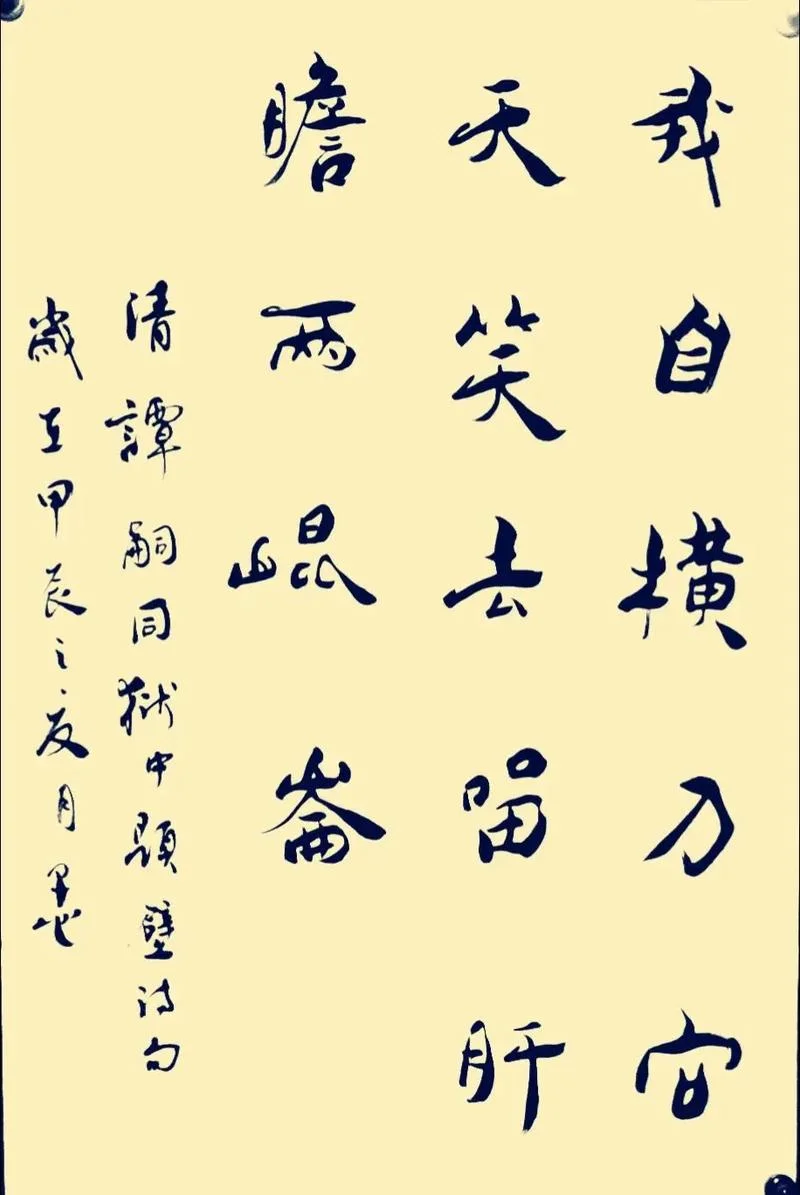 我自横刀向
天笑去留肝
膽兩崐崙
清譚嗣同獄中題壁詩句
歲在甲辰之夏月